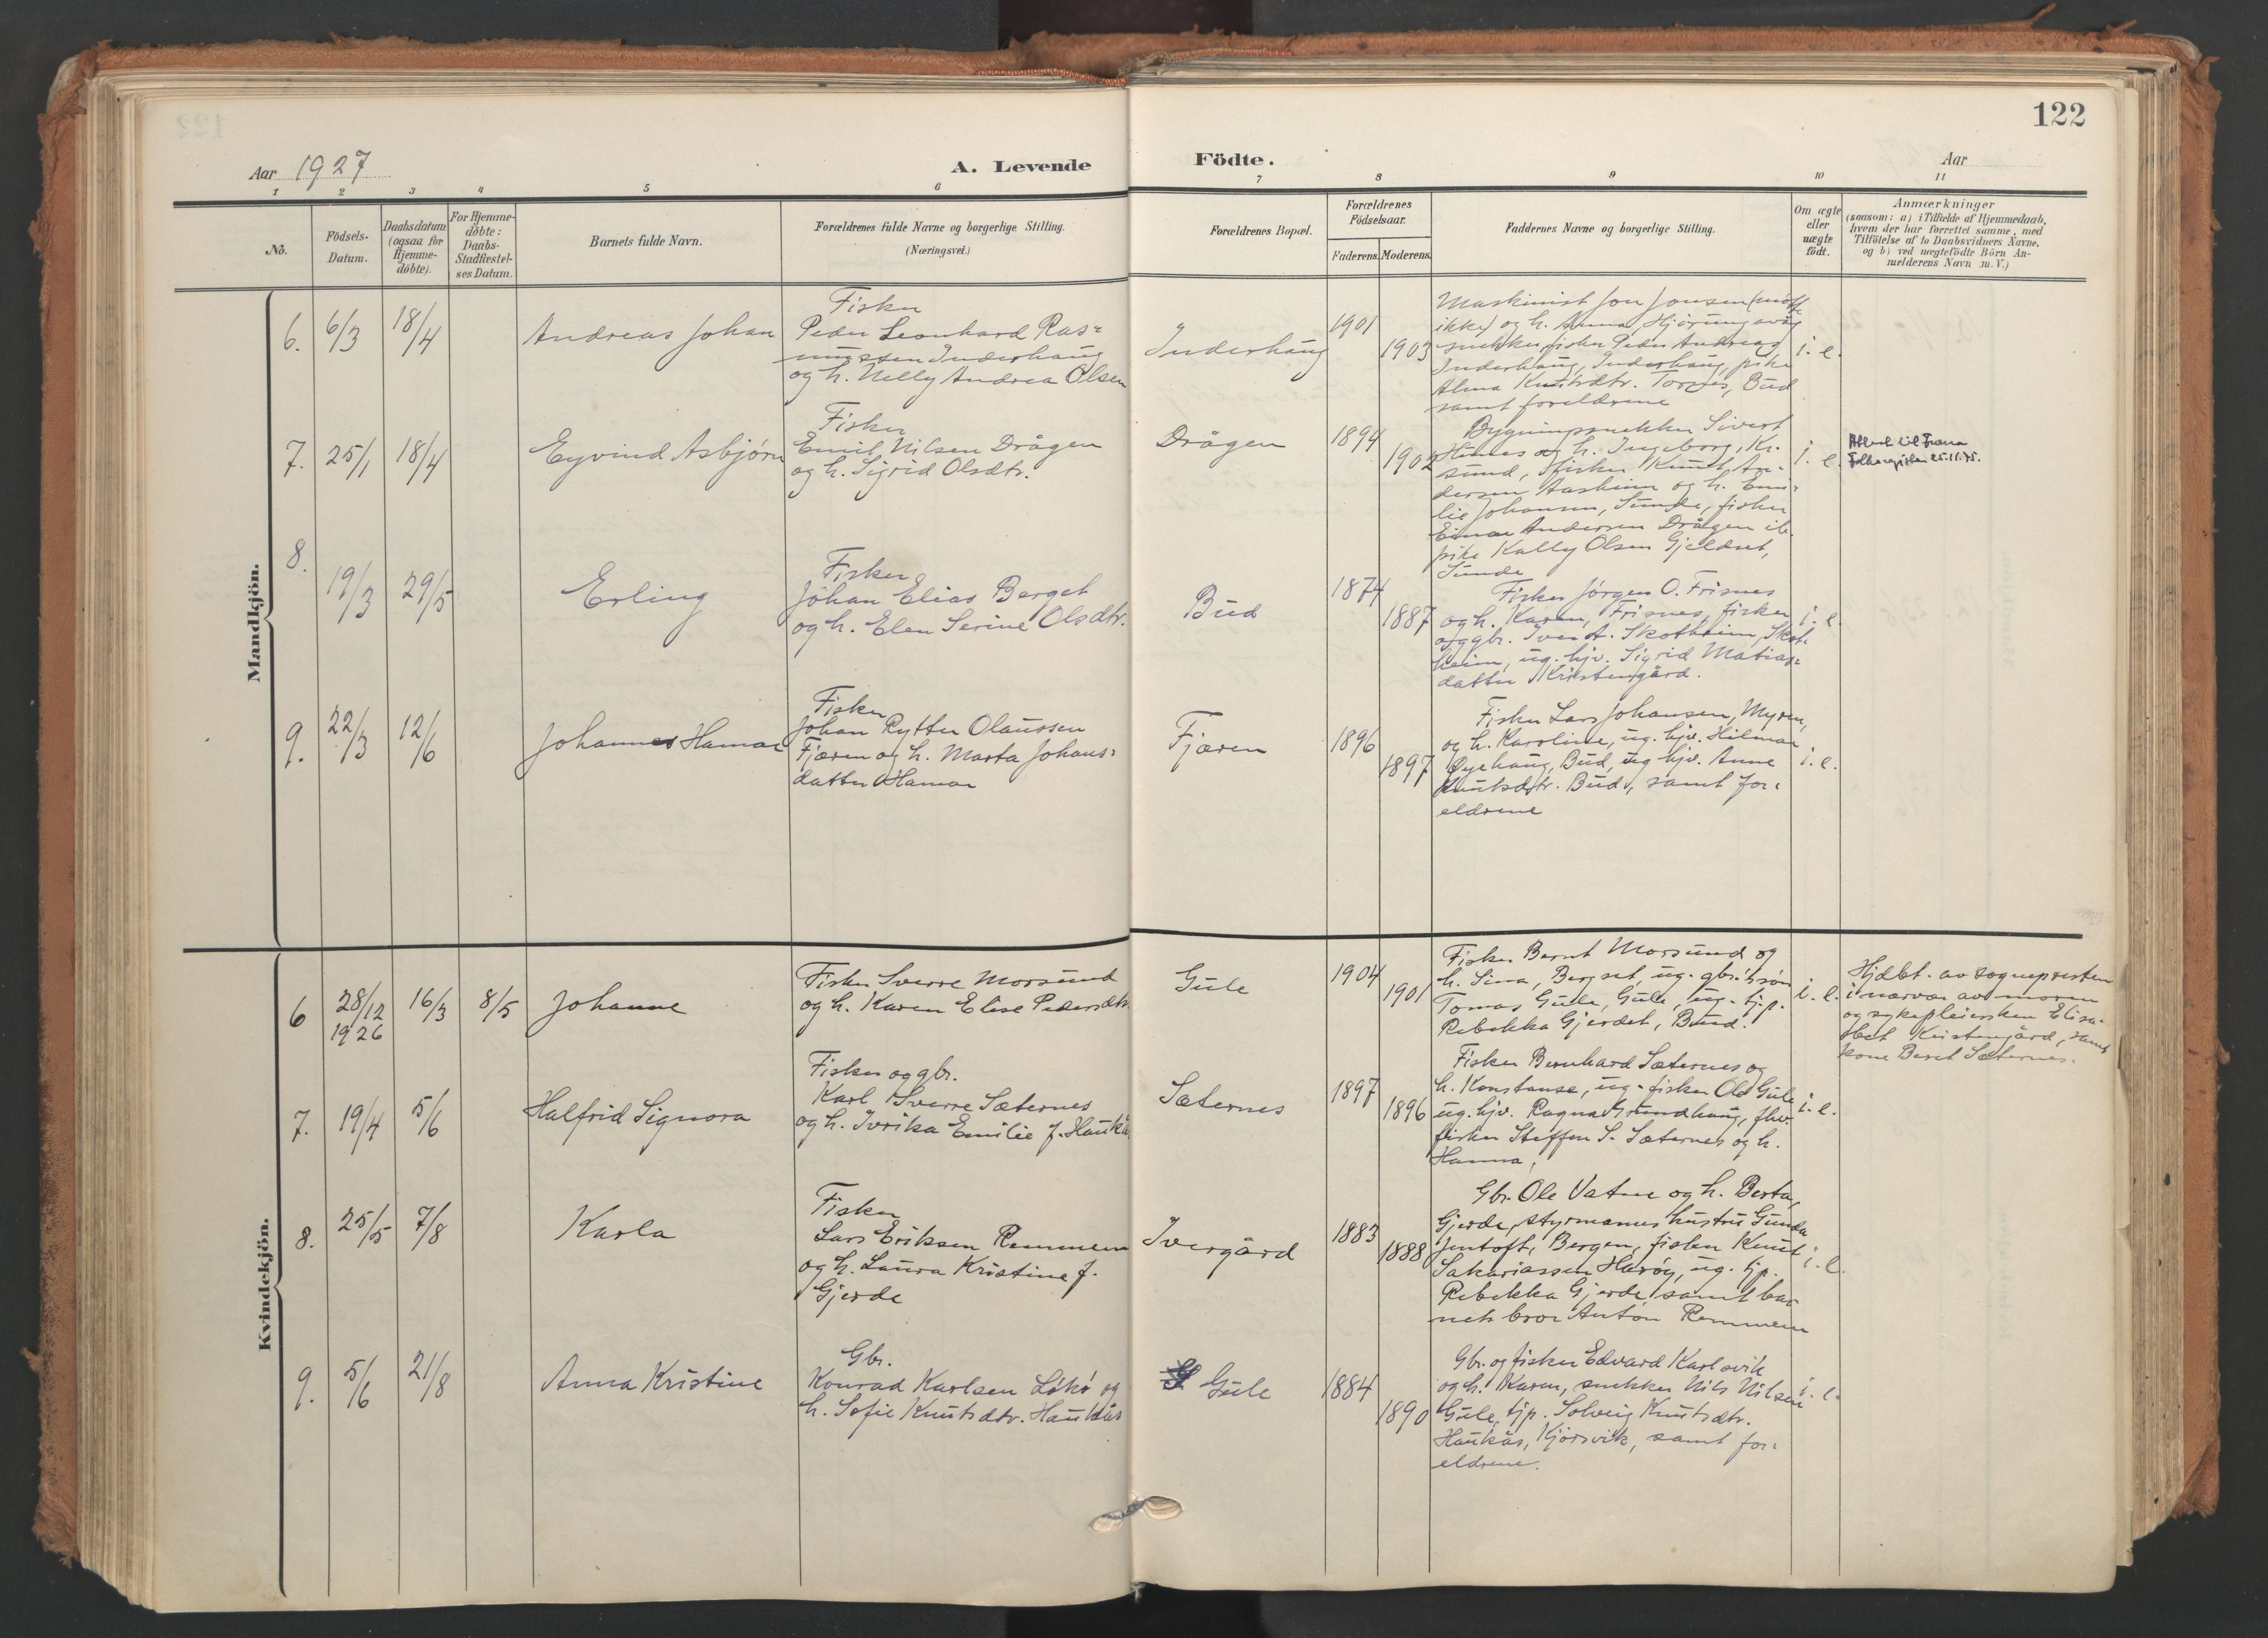 122
Aar 1927
A. Levende
Födte.
Aar
1 2 3 4 5 6 7 8 9 10 11
No.
Födsels-
Datum.
Daabsdatum
(ogsaa for
Hjemme-
döbte).
For Hjemme-
döbte:
Daabs-
Stadfæstel-
ses Datum.
Barnets fulde Navn.
Forældrenes fulde Navne og borgerlige Stilling.
(Næringsvei.)
Forældrenes Bopæl.
Forældrenes
Födselsaar.
Faderens. Moderens.
Faddernes Navne og borgerlige Stilling.
Om ægte
eller
uægte
födt.
Anmærkninger
(saasom: a) i Tilfælde af Hjemmedaab,
hvem der har forrettet samme, med
Tilföielse af to Daabsvidners Navne,
og b) ved uægtefödte Börn An-
melderens Navn m. V.)
Mandkjön.
6. 6/3 18/4
Andreas Johan
Fisker
Peder Leonhard Ras-
mussen Inderhaug
og h. Nelly Andrea Olsen
Inderhaug
1901
1903
Maskinist Jon Jonsen (møtte
ikke) og h. Anna, Hjørungavåg
snekker, fisker Peder Andreas
Inderhaug, Inderhaug, pike
Alma Knutsdtr. Tornes, Bud
samt foreldrene
i. e.
7. 25/1 18/4
Eyvind Asbjørn
Fisker
Emil Nilsen Drågen
og h. Sigrid Olsdtr.
Drågen
1894
1902
Bygningssnekker Sivert
Hustad og h. Ingeborg, Kr.
sund, fisker Knut An-
dersen Aasheim og h. Emi-
lie Johansen, Sunde, fisker
Einar Andersen Drågen ib.
pike Kally Olsen Gjeldnet,
Sunde
i. e.
Attest til Fræna
Folkeregister 25.11.75.
8. 19/3 29/5
Erling
Fisker
Johan Elias Berget
og h. Elen Serine Olsdtr.
Bud
1874
1887
Fisker Jørgen O. Frisnes
og h. Karen, Frisnes, fisker
og gbr. Iver A. Skotheim, Skot-
heim, ug. hjv. Sigrid Matias-
datter Kristengård.
i. e.
9. 22/3 12/6
Johannes Hamar
Fisker
Johan Rytter Olaussen
Fjæren og h. Marta Johans-
datter Hamar
Fjæren
1896
1897
Fisker Lars Johansen, Myren,
og h. Karoline, ug. hjv. Hilmar
Øyehaug, Bud, ug hjv. Anne
Knutsdtr. Bud, samt for-
eldrene
i. e.
Kvindekjön.
6 28/12 1926 16/3 8/5
Johanne
Fisker Sverre Morsund
og h. Karen Elise Pedersdtr.
Gule
1904
1901
Fisker Bernt Morsund og
h. Sina, Bergset, ug. gbr.'s søn
Tomas Gule, Gule, ug. tj.p.
Rebekka Gjerdet, Bud.
i. e.
Hjdbt. av sognepresten
i nærvær av moren
og sykepleiersken Elisa-
bet Kristengård, samt
kone Beret Sæternes.
7. 19/4 5/6
Halfrid Signora
Fisker og gbr.
Karl Sverre Sæternes
og h. Ivrika Emilie f. Haukås
Sæternes
1897
1896
Fisker Bernhard Sæternes og
h. Konstanse, ug. fisker Ole Gule
ug. hjv. Ragna Grundhaug, fhv.
fisker Steffen S. Sæternes og h.
Hanna,
i. e.
8. 25/5 7/8
Karla
Fisker
Lars Eriksen Remmem
og h. Laura Kristine f.
Gjerde
Ivergård
1883
1888
Gbr. Ole Vatne og h. Berta,
Gjerde, styrmanns hustru Gunda
Jentoft, Bergen, fisker Knut
Sakariassen Harøy, ug. tjp.
Rebekka Gjerde samt bar-
nets bror Anton Remmem
i. e.
9. 5/6 21/8
Anna Kristine
Gbr.
Konrad Karlsen Løkø og
h. Sofie Knutsdtr. Haukås
Gule
1884
1890
Gbr. og fisker Edvard Karlsvik
og h. Karen, snekker Nils Nilsen
Gule, tjp. Solveig Knutsdtr.
Haukås, Kjørsvik, samt for-
eldrene.
i. e.